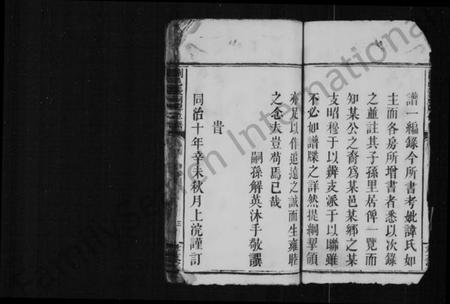 譜一編錄今所書考妣諱氏如
主而各房所增書者悉以次錄
之並註其子孫里居俾一覽而
知某公之裔為某邑某鄉之某
支昭穆于以辨支派于以聯雖
不必如譜牒之詳然提綱挈領
亦足以作追遠之誠而生雍睦
之念夫豈苟焉已哉
嗣孫解英沐手敬譔
旹
同治十年辛未秋月上浣謹訂